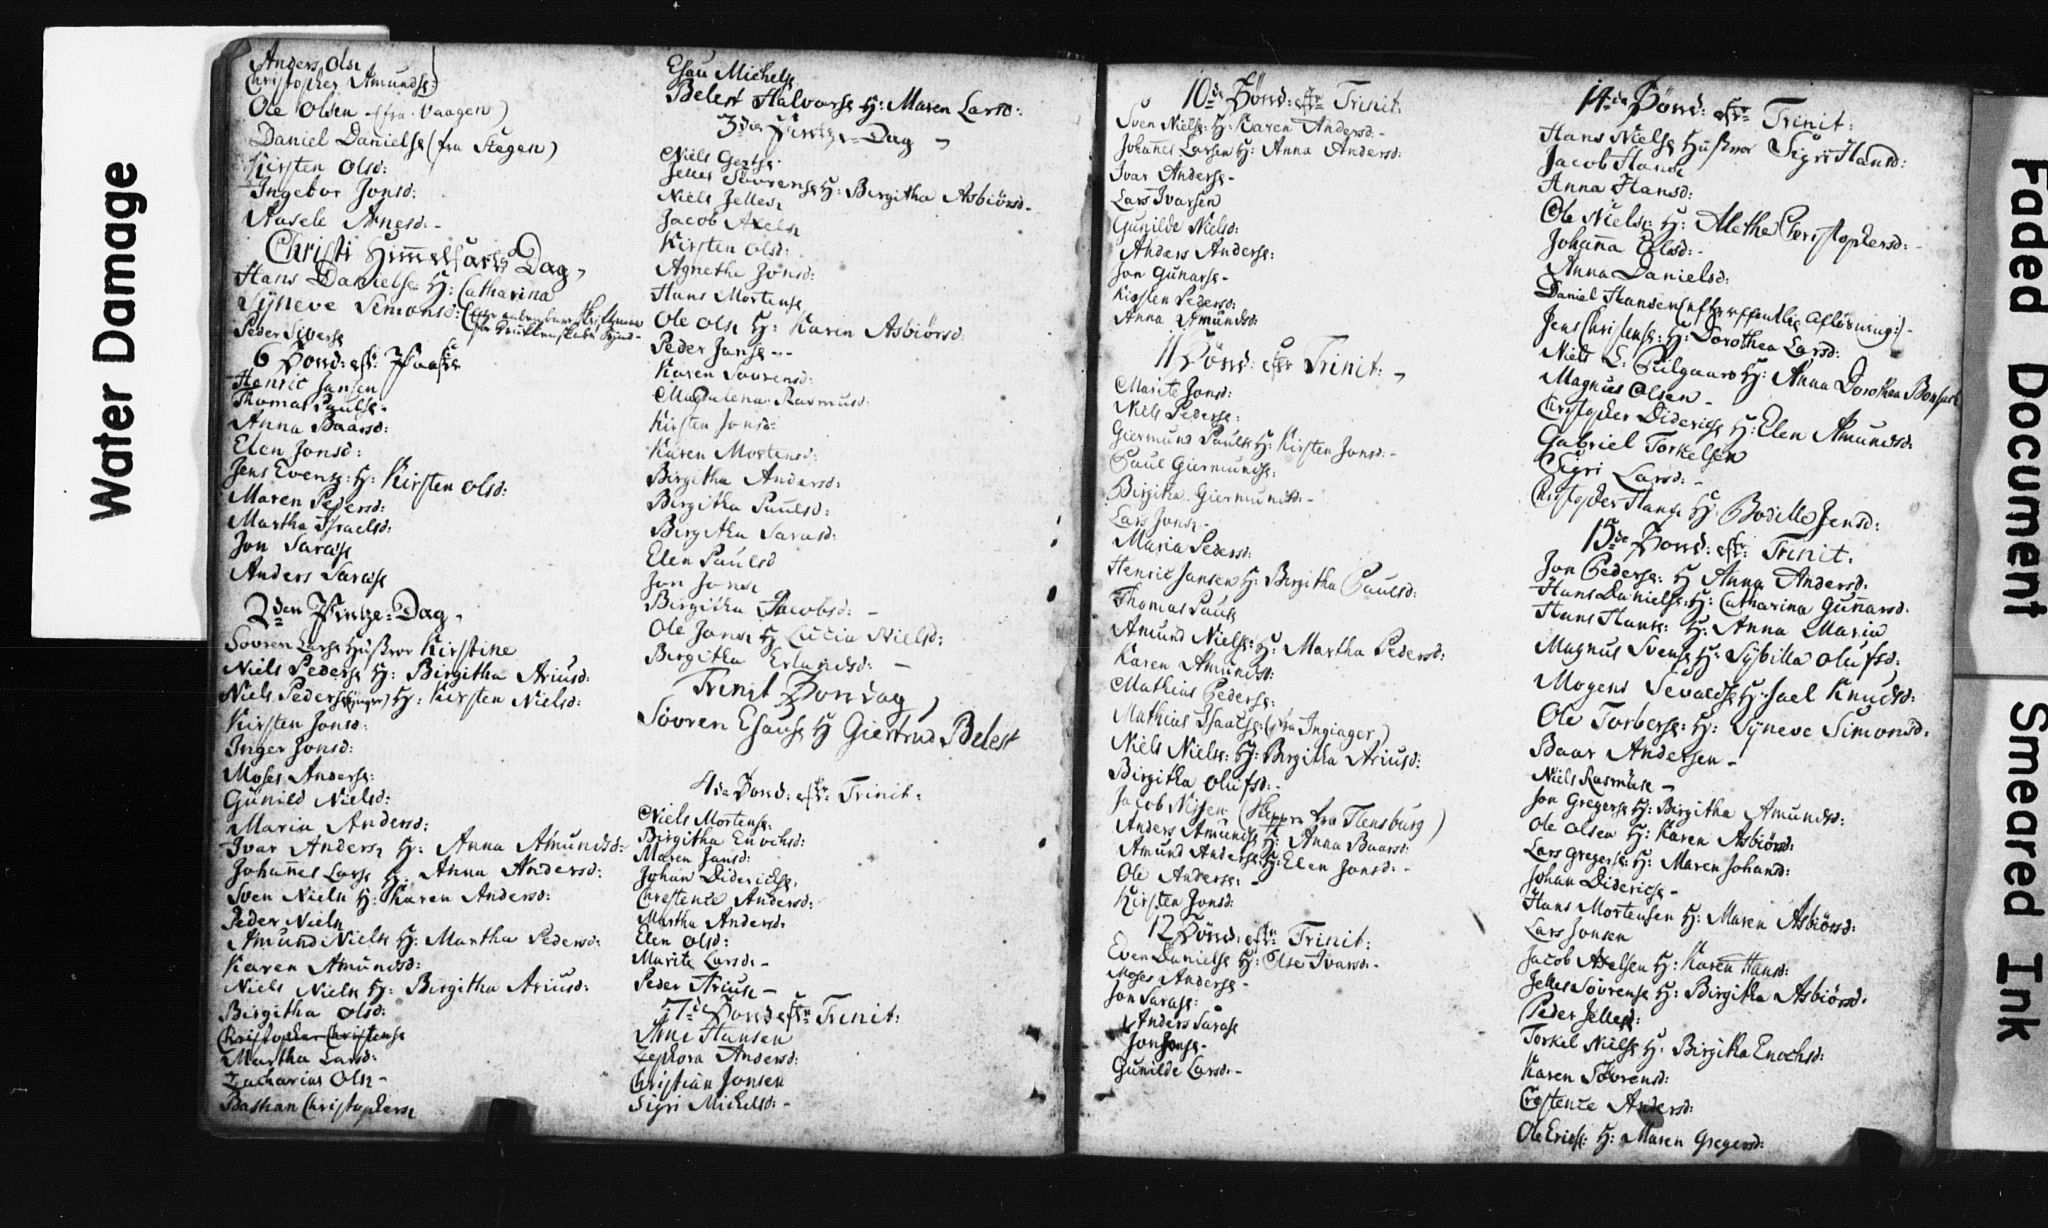 Water Damage
Anders Ols
Christopher Amundss:
Ole Olsen (fra Vaagen)
Daniel Danielss (fra Stegen)
Kirsten Olsd:
Ingebor Jonsd:
Aasele Arnesd:-
Christi Himmelfarts Dag,
Hans Danielss: H: Catharina
Syneve Simonsd:
Peder Siverss
6 Sönd: eft: Paaske
Henric Jansen
Thomas Paulss-
Anna Baarsd:
Elen Jonsd:
Jens Evens: H: Kirsten Olsd:
Maren Pedersd:
Martha Israelsd:
Jon Sarass
Anders Sarass
2den Pintze-Dag,
Sövren Larss Hustroe Kirstine
Niels Pederss H: Birgitha Ariusd:
Niels Pederss (yngre) H: Kirsten Nielsd:
Kirsten Jonsd:
Inger Jonsd:
Moses Anderss:
Gunild Nielsd:
Maria Andersd:
Ivar Anders H: Anna Amundsd:
Johannes Larss H: Anna Andersd:
Sven Niels H: Karen Andersd:
Peder Niels
Amund Niels H: Martha Pedersd:
Karen Amundsd:
Niels Niels H: Birgitha Ariusd:
Birgitha Olsd:
Christopher Christenss
Martha Larsd:
Zacharias Ols-
Bastian Christophers
Esau Michels
Belest Halvorss H: Maren Larsd:
3die Pintze-Dag
Niels Gertss
Jelles Sövrenss H: Birgitha Asbiörsd.
Niels Jelles
Jacob Axels
Kirsten Olsd:
Agnethe Jonsd:
Hans Mortenss
Ole Ols H: Karen Asbiörsd
Peder Janss--
Karen Sövrensd:
Magdalena Rasmusd:
Kirsten Jonsd:
Karen Mortensd:
Birgitha Andersd:
Birgitha Paulsd:
Birgitha Sarasd:
Elen Paulsd
Jon Jons
Birgitha Jacobsd: -
Ole Jons H Lucia Nielsd:
Birgitha Erlandsd: -
Trinit Söndag
Sövren Esauss H Giertrud Belest
4de Sönd: eftr: Trinit:
Niels Mortenss:
Birgitha Enochsd:
Maren Jansd:
Johan Didericss.
Chrestence Andersd:
Martha Andersd:
Elen Olsd:
Marite Larsd:-
Peder Arius-
7de Sönd eftr Trinit:
Arne Hansen
Zephora Andersd:
Christian Jonsen
Sigri Michelsd:-
10de Sönd: eftr Trinit:
Sven Nielss: H: Karen Andersd:-
Johannes Larsen H: Anna Andersd:
Ivar Anderss-
Lars Ivarsen
Gunilde Nielsd:
Anders Anderss:
Jon Gunarss-
Kirsten Pedersd:
Anna Amundsd:
11 Sönd: eftr Trinit:
Marite Jonsd:
Niels Pederss:
Giermund Pauls H: Kirsten Jonsd:-
Paul Giermundss:
Birgitha Giermundsd:-
Lars Jons-
Maria Pedersd:
Henric Jansen H: Birgitha Paulsd:
Thomas Pauls
Amund Nielss: H: Martha Pedersd:
Karen Amundsd:
Mathias Pederss:
Mathias Isaacss: (fra Ingiager)
Niels Niels: H: Birgitha Ariusd:
Birgitha Olufsd:-
Jacob Nissen (Skipper fra Flensburg)
Anders Amundss H: Anna Baarsd:
Amund Anderss H: Elen Jonsd:-
Ole Anderss: -
Kirsten Jonsd:
12 Sönd: eftr: Trinit:
Even Danielss H: Else Ivarsd:-
Moses Anderss-
Jon Sarass:
Anders Sarass
Jon Jonss-
Gunilde Larsd:-
14de Sönd: eftr Trinit:
Hans Nielss Hustroe Sigri Hansd:
Jacob Hans
Anna Hansd:
Ole Niels: H: Alethe Christophersd:
Johanna Olsd:-
Anna Danielsd:
Daniel Hansen (efter offentlig Aflösning)-
Jens Christenss: H: Dorothea Larsd:
Niels L: Pilgaard H: Anna Dorothea Bonsach
Magnus Olsen-
Christopher Didericss H: Elen Amundsd:
Gabriel Torkelsen
Sigri Larsd:-
Christopher Hans H: Bodille Jensd:
15de Sönd: eftr: Trinit:
Jon Pederss: H Anna Andersd.
Hans Danielss: H: Catharina Gunnarsd:
Hans Hans: H: Anna Maria
Magnus Svenss H: Sybilla Olufsd.
Mogens Sevaldss H: Jael Knudsd:
Ole Torberss: H: Syneve Simonsd.
Baar Andersen-
Niels Rasmuss-
Jon Gregerss H: Birgitha Amundsd:
Ole Olsen H: Karen Asbiörsd:
Lars Gregerss: H: Maren Johansd:
Johan Didericss-
Hans Mortensen H: Maren Asbiörsd:
Lars Jonsen
Jacob Axelsen H: Karen Hansd:
Jelles Sövrenss H: Birgitha Asbiörsd.
Peder Jelles:
Torkel Nielss H: Birgitha Enochsd:
Karen Sövrensd:
Crestence Andersd:
Ole Ericss: H: Maren Gregersd:
Faded Document
Smeared Ink